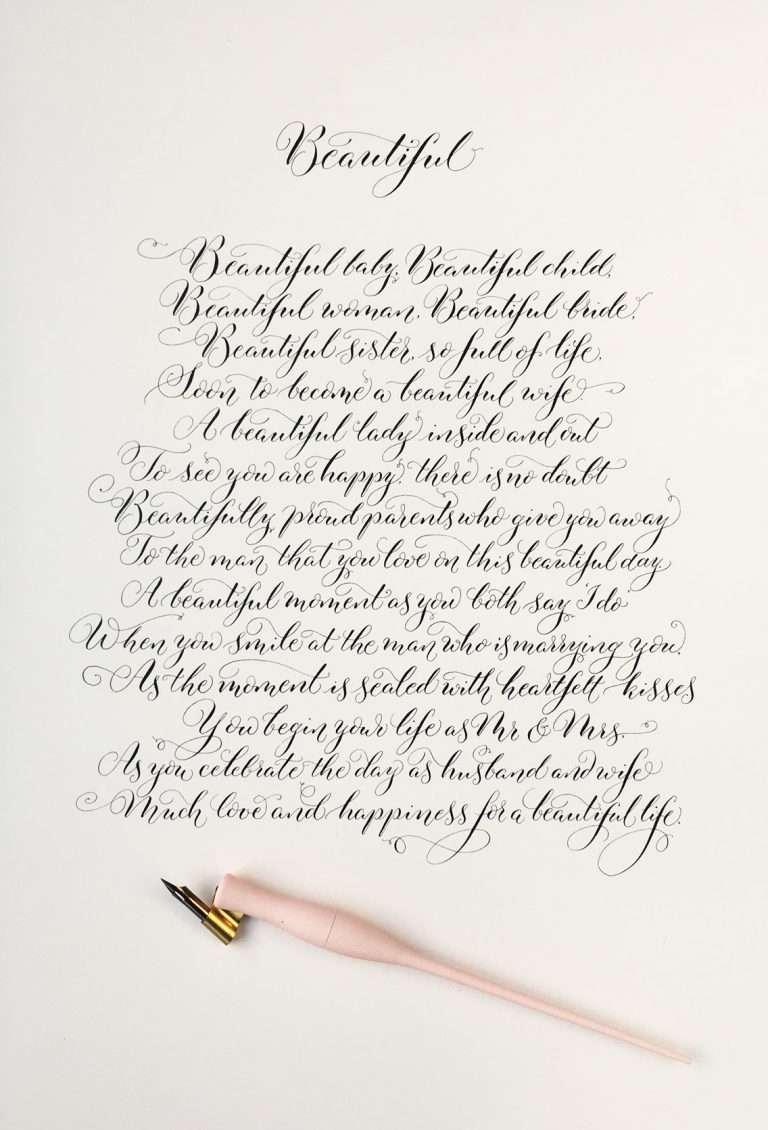 Beautiful
Beautiful baby, Beautiful child,
Beautiful woman, Beautiful bride,
Beautiful sister, so full of life,
Soon to become a beautiful wife.
A beautiful lady inside and out
To see you are happy, there is no doubt
Beautifully proud parents who give you away
To the man that you love on this beautiful day.
A beautiful moment as you both say 'I do'
When you smile at the man who is marrying you,
As the moment is sealed with heartfelt kisses
You begin your life as Mr & Mrs.
As you celebrate the day as husband and wife
Much love and happiness for a beautiful life.